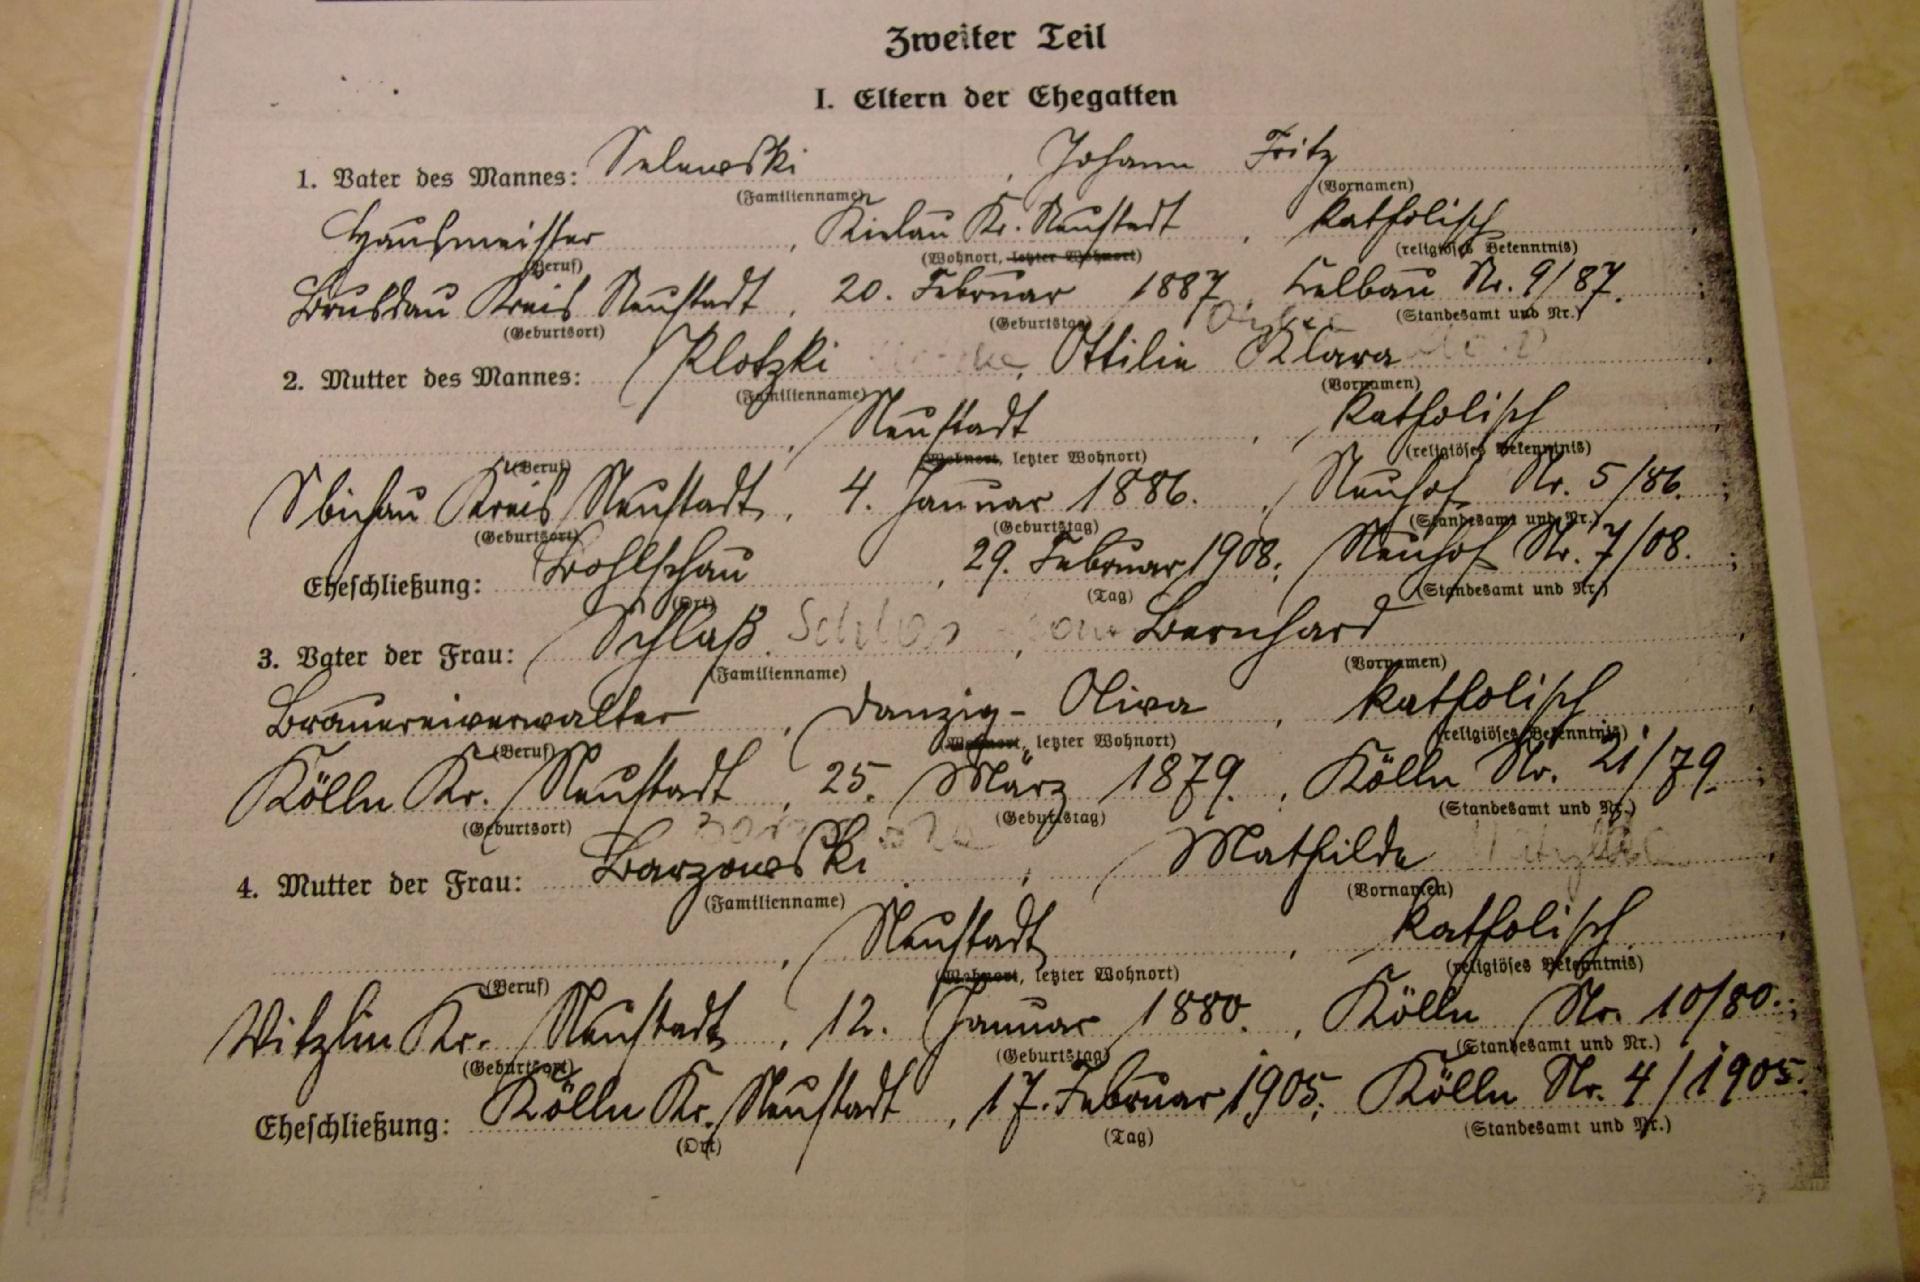 Zweiter Teil
I. Eltern der Ehegatten
1. Vater des Mannes: Selewski, Johann Fritz
(Familienname) (Vornamen)
Hausmeister, Kielau Kr. Neustadt, katholisch
(Beruf) (Wohnort, letzter Wohnort) (religiöses Bekenntnis)
Brusdau Kreis Neustadt, 20. Februar 1887, Celbau Nr. 9/87.
(Geburtsort) (Geburtstag) (Standesamt und Nr.)
2. Mutter des Mannes: Plotzki, Ottilie Klara
(Familienname) (Vornamen)
Neustadt, katholisch
(Beruf) (Wohnort, letzter Wohnort) (religiöses Bekenntnis)
Sbichau Kreis Neustadt, 4. Januar 1886., Neuhof Nr. 5/86.;
(Geburtsort) (Geburtstag) (Standesamt und Nr.)
Eheschließung: Bohlschau, 29. Februar 1908; Neuhof Nr. 7/08.;
(Ort) (Tag) (Standesamt und Nr.)
3. Vater der Frau: Schlaß, Bernhard
(Familienname) (Vornamen)
Brauereiverwalter, Danzig-Oliva, katholisch
(Beruf) (Wohnort, letzter Wohnort) (religiöses Bekenntnis)
Kölln Kr. Neustadt, 25. März 1879., Kölln Nr. 21/79.;
(Geburtsort) (Geburtstag) (Standesamt und Nr.)
4. Mutter der Frau: Barzowski, Mathilde
(Familienname) (Vornamen)
Neustadt, katholisch.
(Beruf) (Wohnort, letzter Wohnort) (religiöses Bekenntnis)
Vitzlin Kr. Neustadt, 12. Januar 1880., Kölln Nr. 10/80.;
(Geburtsort) (Geburtstag) (Standesamt und Nr.)
Eheschließung: Kölln Kr. Neustadt, 17. Februar 1905; Kölln Nr. 4/1905.
(Ort) (Tag) (Standesamt und Nr.)